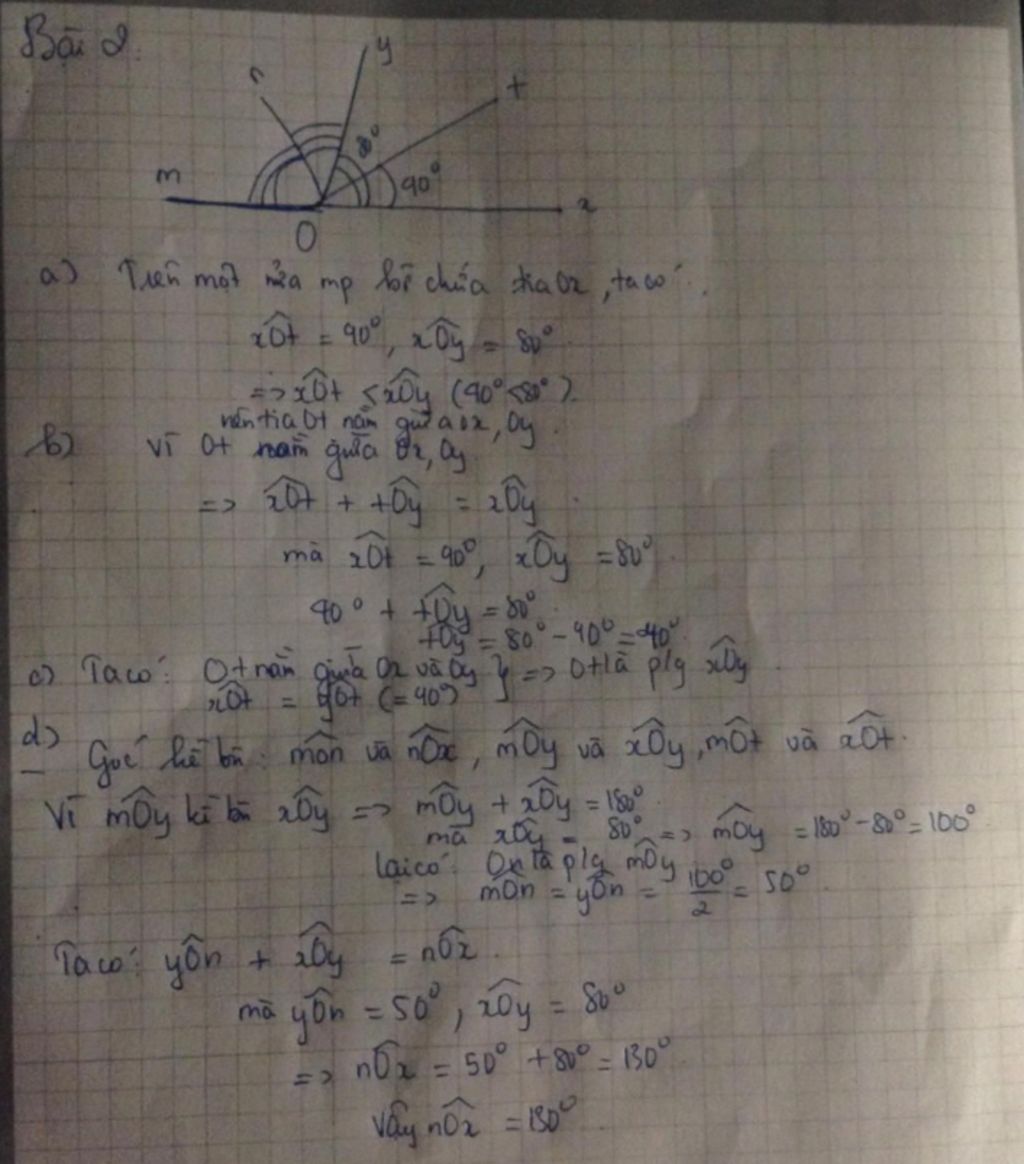 Bài 2.
y
n
t
80°
m
40°
x
O
a) Trên một nửa mp bờ chứa tia Ox, ta có:
xOt = 40°, xOy = 80°
=> xOt < xOy (40° < 80°).
nên tia Ot nằm giữa Ox, Oy.
b) Vì Ot nằm giữa Ox, Oy
=> xOt + tOy = xOy
mà xOt = 40°, xOy = 80°
40° + tOy = 80°
tOy = 80° - 40° = 40°
c) Ta có: Ot nằm giữa Ox và Oy } => Ot là p/g xOy
xOt = yOt (= 40°)
d) Góc kề bù: mOn và nOx, mOy và xOy, mOt và xOt.
Vì mOy kề bù xOy => mOy + xOy = 180°
mà xOy = 80° => mOy = 180° - 80° = 100°
lại có: On là p/g mOy
=> mOn = yOn = 100°/2 = 50°
Ta có: yOn + xOy = nOx.
mà yOn = 50°, xOy = 80°
=> nOx = 50° + 80° = 130°
Vậy nOx = 130°